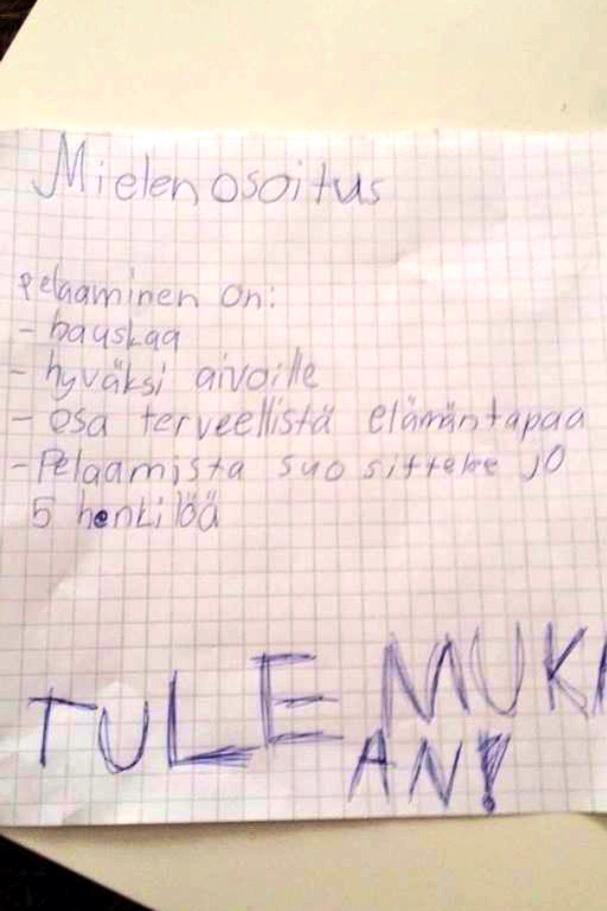 Mielenosoitus
pelaaminen on:
- hauskaa
- hyväksi aivoille
- osa terveellistä elämäntapaa
- Pelaamista suositteke jo
5 henkilöä
TULE MUKA
AN!